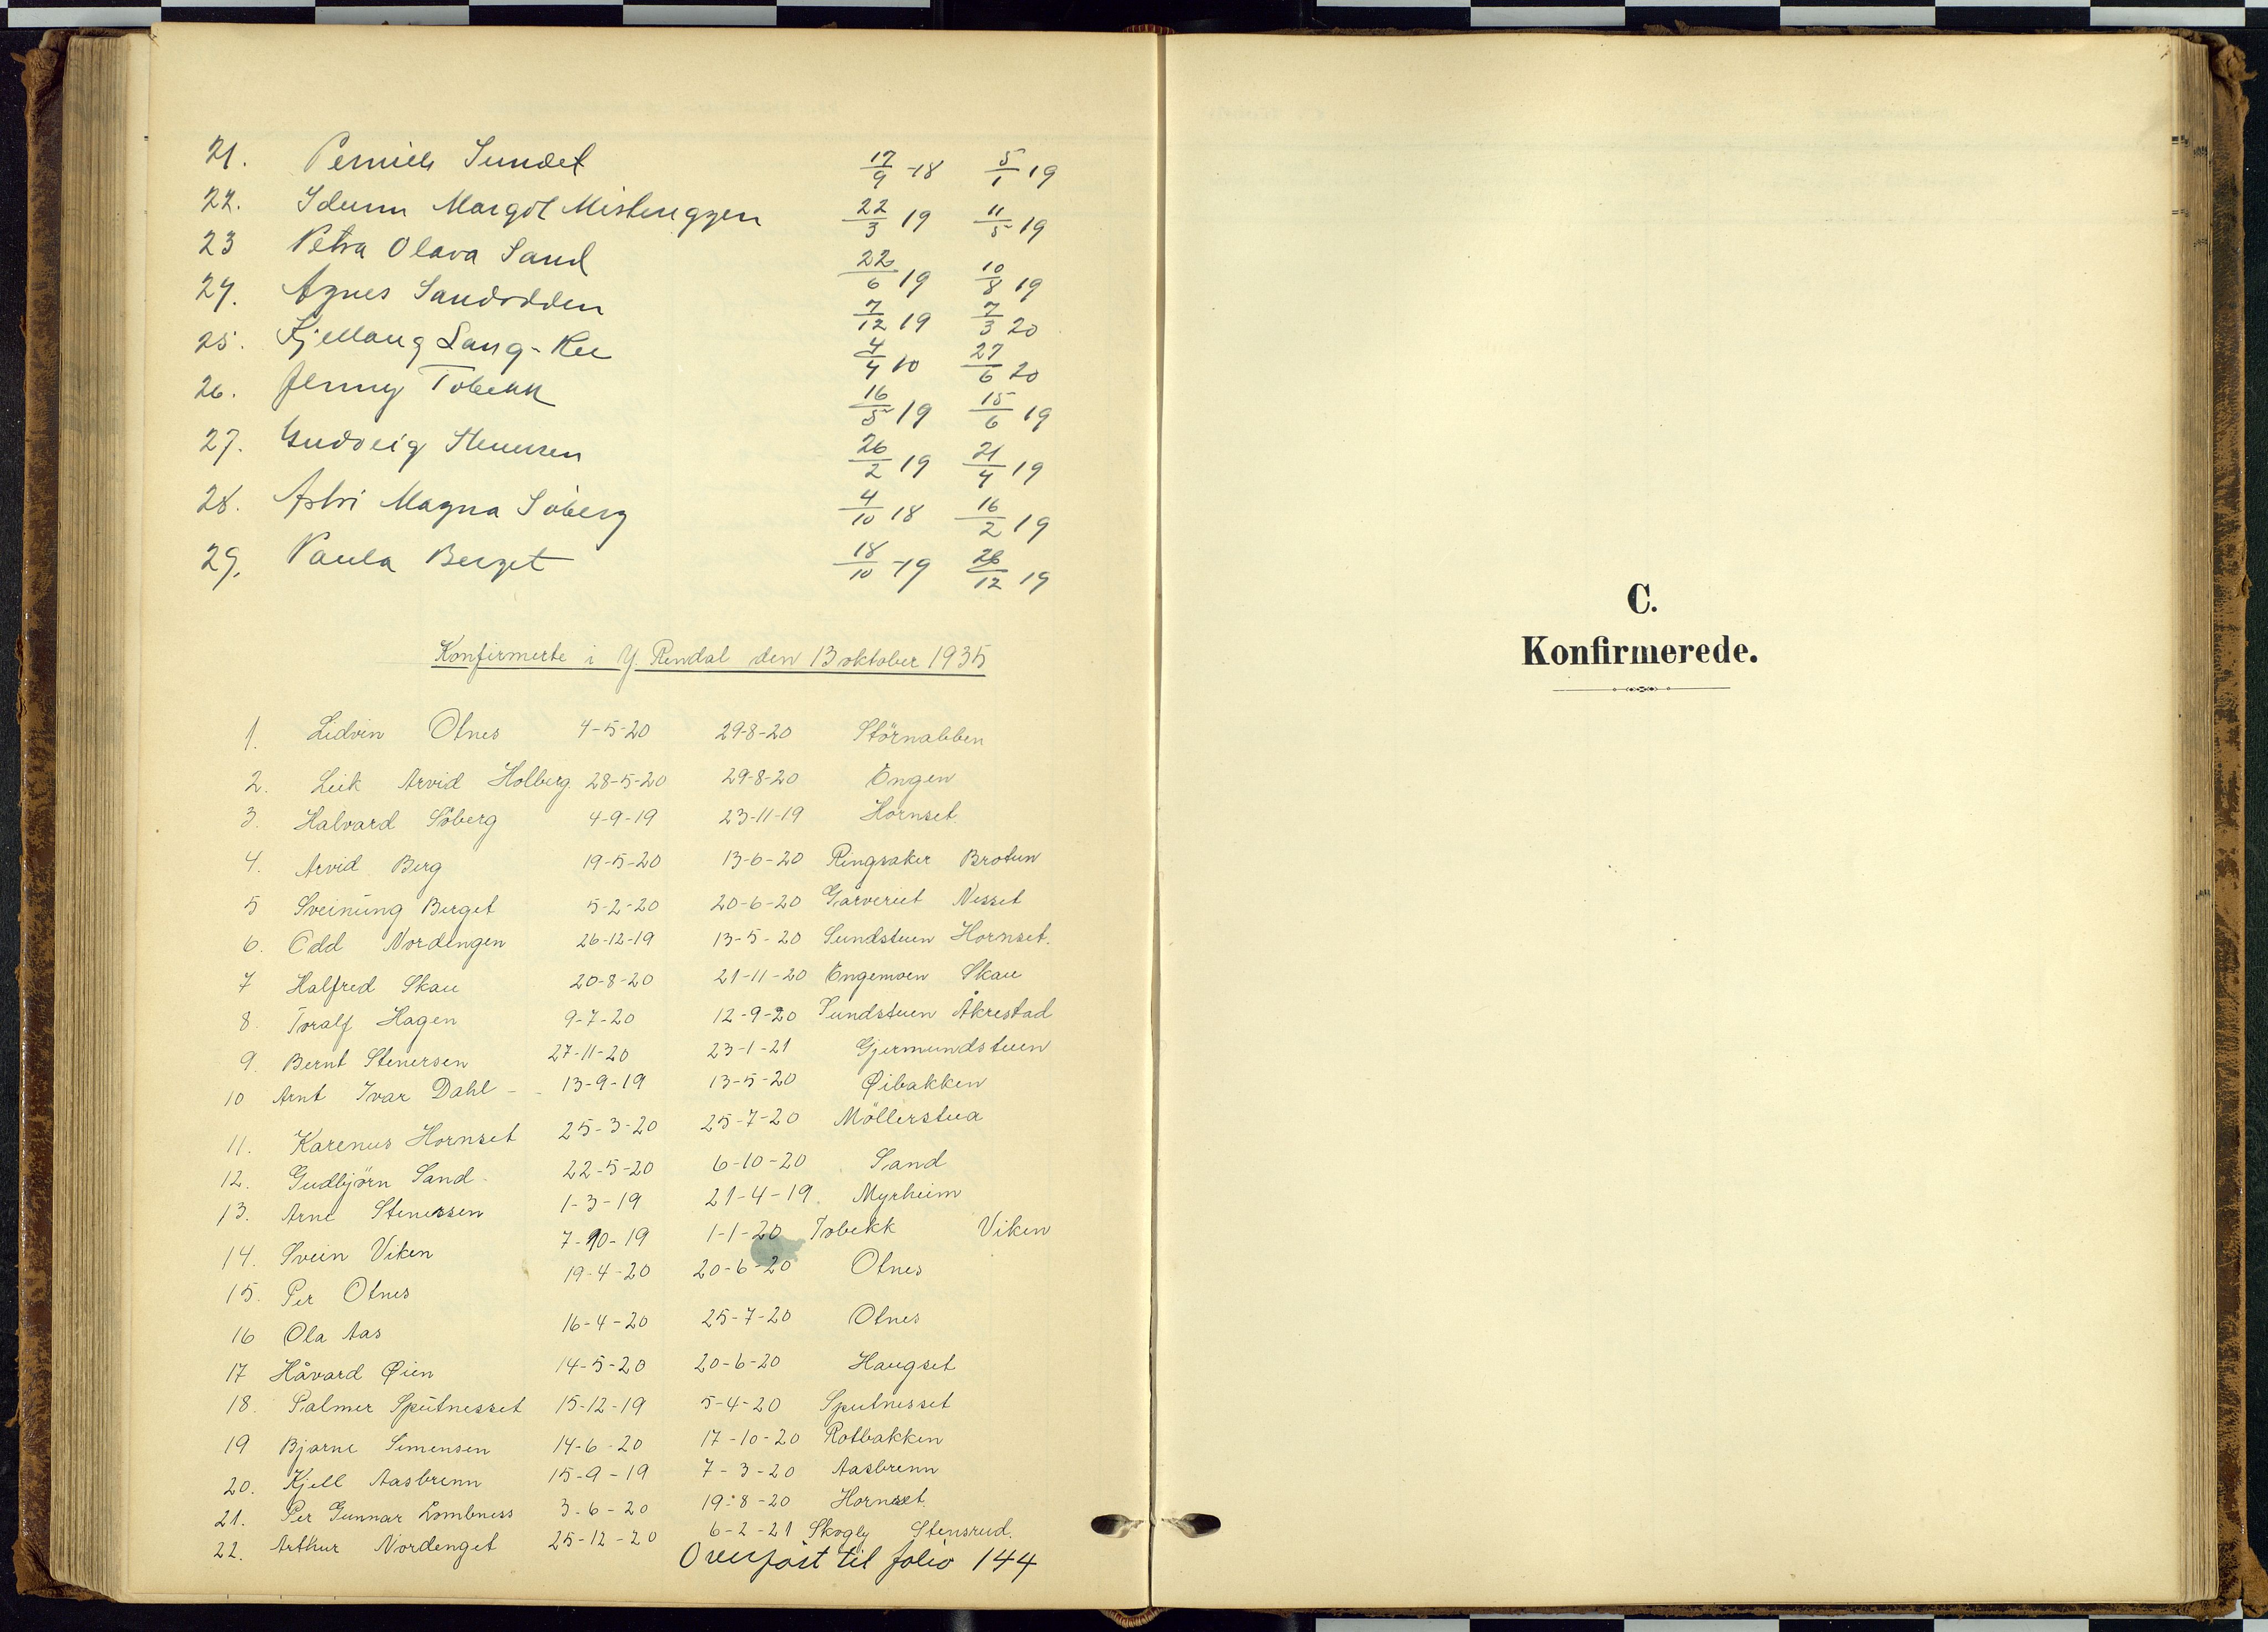 21. Pernille Sundet 17/9 -18 5/1 19
22. Idunn Margot Misteregggen 22/3 19 11/5 19
23 Petra Olava Sand 22/6 19 10/8 19
24. Agnes Sandodden 7/12 19 7/3 20
25. Kjellaug Lang-Ree 4/4 10 27/6 20
26. Jenny Tobekk 16/5 19 15/6 19
27. Gudveig Stenersen 26/2 19 21/4 19
28. Astri Magna Söberg 4/10 18 16/2 19
29. Paula Berget 18/10 -19 26/12 19
Konfirmerte i Y. Rendal den 13 oktober 1935
1. Lidvin Otnes 4-5-20 29-8-20 Störnabben
2. Leik Arvid Holberg 28-5-20 29-8-20 Engen
3. Halvard Söberg 4-9-19 23-11-19 Hornset.
4. Arvid Berg 19-5-20 13-6-20 Ringsaker Brotun
5 Sveinung Berget 5-2-20 20-6-20 Garveriet Nesset
6. Odd Nordengen 26-12-19 13-5-20 Sundstuen Hornset.
7 Halfred Skau 20-8-20 21-11-20 Engemoen Skau
8. Toralf Hagen 9-7-20 12-9-20 Sundstuen Åkrestad
9. Bernt Stenersen 27-11-20 23-1-21 Gjermundstuen
10 Arnt Ivar Dahl - - 13-9-19 13-5-20 Øibakken
11. Karenus Hornset 25-3-20 25-7-20 Möllerstua
12. Gudbjörn Sand 22-5-20 6-10-20 Sand
13. Arne Stenersen 1-3-19 21-4-19. Myrheim
14. Svein Viken 7-10-19 1-1-20 Tobekk Viken
15. Per Otnes 19-4-20 20-6-20 Otnes
16 Ola Aas 16-4-20 25-7-20 Otnes
17 Håvard Øien 14-5-20 20-6-20 Haugset
18. Palmer Sputnesset 15-12-19 5-4-20 Sputnesset
19 Bjarne Simensen 14-6-20 17-10-20 Rotbakken
20. Kjell Aasbrenn 15-9-19 7-3-20 Aasbrenn
21. Per Gunnar Lombness 3-6-20 19-8-20 Hornset.
22. Arthur Nordenget 25-12-20 6-2-21 Skogly Stensrud.
Overfört til folio 144
C.
Konfirmerede.